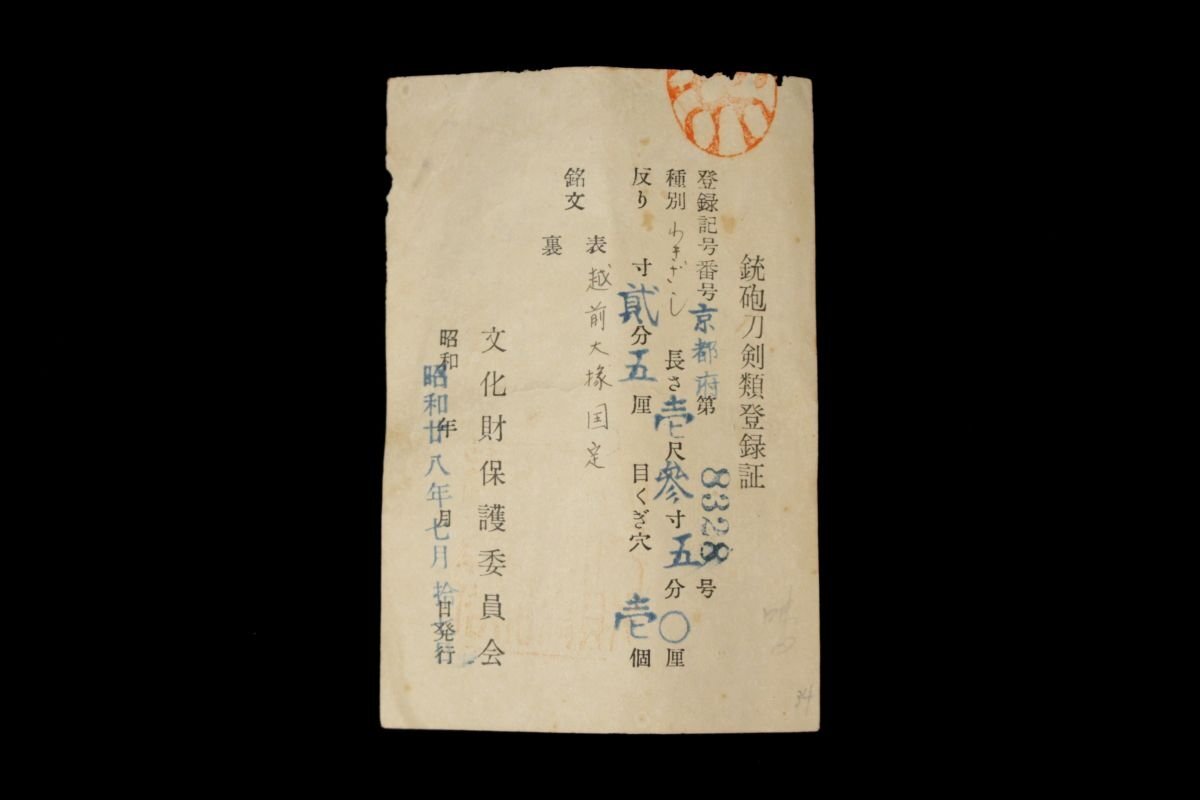 銃砲刀剣類登録証
登録記号番号京都府第8328号
種別 わきざし 長さ壱尺参寸五分〇厘
反り 寸貳分五厘 目くぎ穴 壱個
銘文
表 越前大掾国定
裏
文化財保護委員会
昭和 年 月 日発行
昭和廿八年七月拾
34